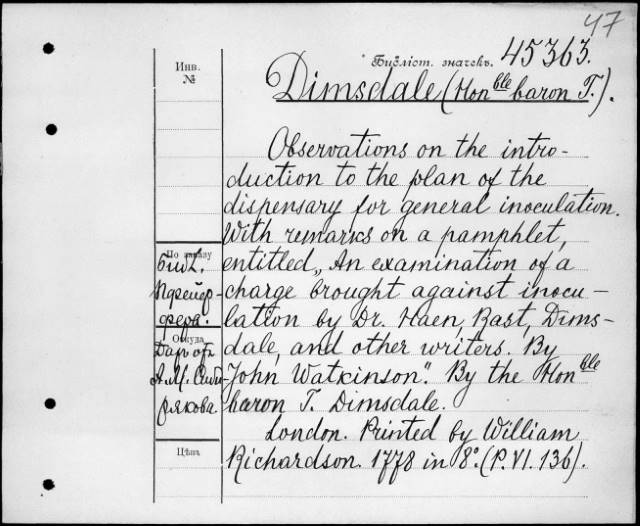 47
Библіот. значекъ. 45363.
Dimsdale (Hon^ble baron T.).
Observations on the intro-
duction to the plan of the
dispensary for general inoculation.
With remarks on a pamphlet,
entitled „An examination of a
charge brought against inocu-
lation by Dr. Haen, Rast, Dims-
dale, and other writers. By
John Watkinson". By the Hon^ble
baron T. Dimsdale.
London. Printed by William
Richardson. 1778 in 8°. (P. VI. 136).
Инв.
№
По заказу
Библ.
Пфейф-
фера.
Откуда
Даръ отъ
А.М. Сиби-
рякова
Цѣна